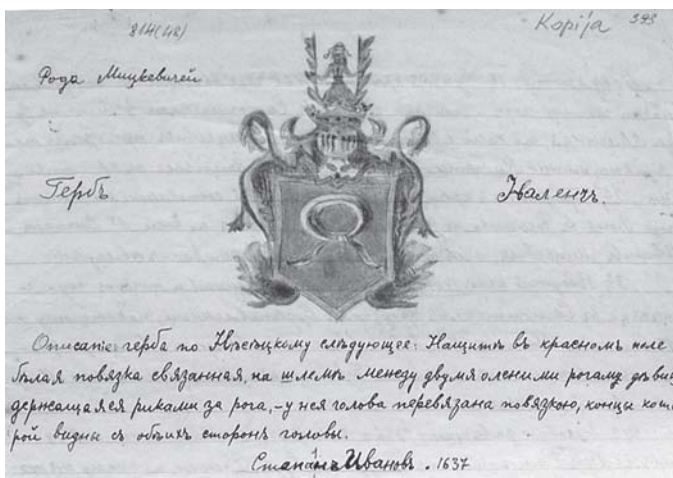 814(48)
Kopija 393
Рода Мицкевичей
Гербъ Наленчъ.
Описаніе герба по Нѣсецкому слѣдующее: На щитѣ въ красномъ поле
бѣлая повязка связанная, на шлемѣ между двумя оленими рогами дѣвица
держащаяся руками за рога, – у нея голова перевязана повязкою, концы кото
рой видны съ обѣихъ сторонъ головы.
Ивановъ. 1637